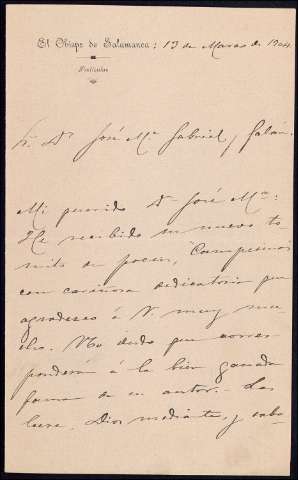 El Obispo de Salamanca: 13 de Marzo de 1904.
Particular
Sr. Dn. José Mª. Gabriel y Galán.
Mi querido Dn José Mª:
He recibido su nuevo to-
mito de poesías, "Campesinas"
con cariñosa dedicatoria que
agradezco á V. muy mu-
cho. No dudo que corres-
ponderá á la bien ganada
fama de su autor.- Las
leeré, Dios mediante, y sabo-